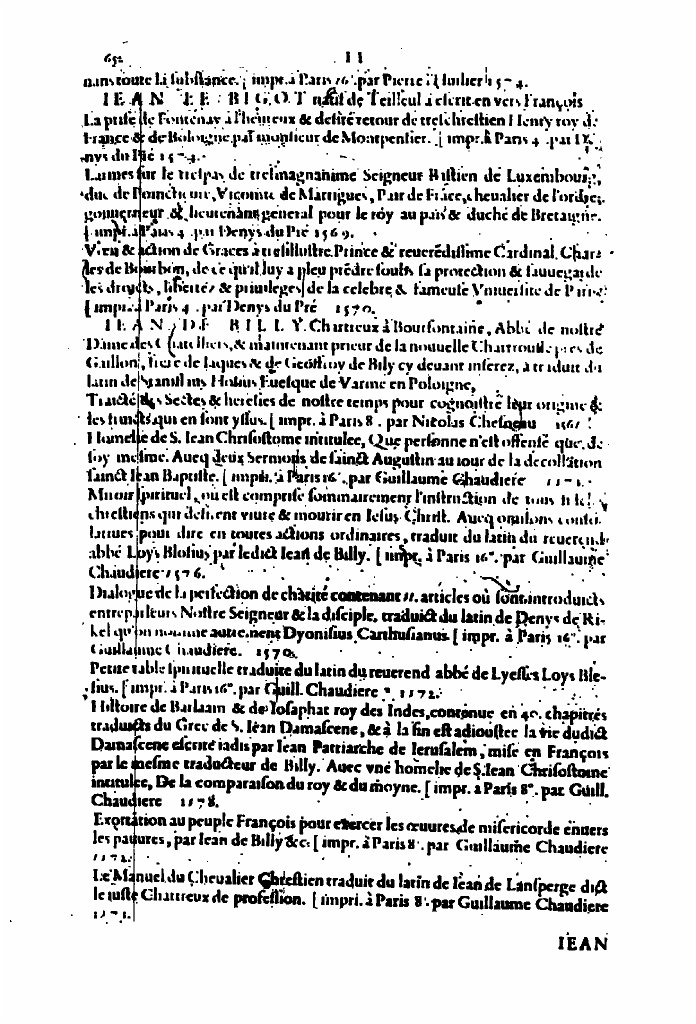 652 I I
toute la substance. [ impr. à Paris 16°. par Pierre l'huilier 1574.
IEAN LE BIGOT natif de Teilleul a escrit en vers François
La prise de Fontenay à l'heureux & desiré retour de treschrestien Henry roy de
France & de Poloigne, par monsieur de Montpensier. [ impr. à Paris 4. par De
nys du Pré 1574.
Larmes sur le trespas de tresmagnanime Seigneur Bastien de Luxembourg,
duc de Vicomte de Martigues, Pair de Frãce, cheualier de l'ordre,
gouuerneur & lieutenant general pour le roy au païs & duché de Bretaigne.
[ impr. à Paris 4. par Denys du Pré 1569.
Vœu & action de Graces à tresillustre Prince & reuerẽdissime Cardinal Char
les de Bourbon, de ce qu'il luy a pleu prẽdre soubs sa protection & sauuegarde
les droicts, libertez & priuileges de la celebre & fameuse Vniuersité de Paris
[ impr. à Paris 4. par Denys du Pré 1570.
IEAN DE BILLY Chartreux à Bourfontaine, Abbé de nostre
Dame des Chastelliers, & maintenant prieur de la nouuelle Chartreuse pres de
Gaillon, frere de Iaques & de Geoffroy de Billy cy deuant inserez, a traduit du
latin de Stanislaus Hosius Euesque de Varme en Poloigne,
Traicté des Sectes & heresies de nostre temps pour cognoistre leur origine &
les qui en sont yssus. [ impr. à Paris 8. par Nicolas Chesneau 1561
Homelie de S. Iean Chrisostome intitulee, Que personne n'est offensé que de
soy mesme. Auec deux Sermons de sainct Augustin au iour de la decollation
sainct Iean Baptiste. [ impri. à Paris 16°. par Guillaume Chaudiere 1571.
Miroir spirituel, où est comprise sommairement l'instruction de tous
chrestiens qui desirent viure & mourir en Iesus Christ. Auec oraisons
pour dire en toutes actions ordinaires, traduit du latin du reuerend
abbé Loys Blosius par ledict Iean de Billy. [ impr. à Paris 16°. par Guillaume
Chaudiere 1576.
Dialogue de la perfection de charité contenant 11. articles où sont introduicts
entreparleurs Nostre Seigneur & la disciple, traduict du latin de Denys de Ri-
kel qu'on nomme autrement Dyonisius Carthusianus. [ impr. à Paris 16°. par
Guillaume Chaudiere. 1570.
Petite table spirituelle traduite du latin du reuerend abbé de Lyesses Loys Blo-
sius. [ impr. à Paris 16°. par Guill. Chaudiere 1572.
Histoire de Barlaam & de Iosaphat roy des Indes, contenue en 40. chapitres
traduicts du Grec de S. Iean Damascene, & à la fin est adioustee la vie dudict
Damascene escrite iadis par Iean Patriarche de Ierusalem, mise en François
par le mesme traducteur de Billy. Auec vne homelie de S. Iean Chrisostome
intitulee, De la comparaison du roy & du moyne. [ impr. a Paris 8°. par Guill.
Chaudiere 1578.
Exortation au peuple François pour exercer les œuures de misericorde enuers
les pauures, par Iean de Billy &c. [ impr. à Paris 8°. par Guillaume Chaudiere
1572.
Le Manuel du Cheualier Chrestien traduit du latin de Iean de Lansperge dict
le iuste Chartreux de profession. [ impri. à Paris 8°. par Guillaume Chaudiere
1573.
IEAN